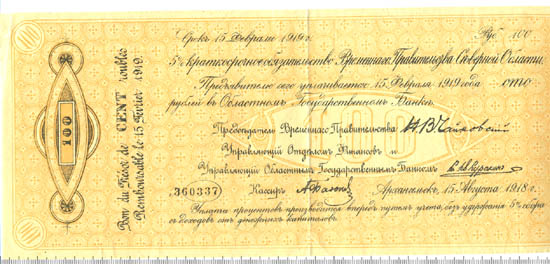 Срокъ 15 Февраля 1919 г. Руб. 100
5% краткосрочное обязательство Временнаго Правительства Северной Области.
Предъявителю сего уплачивается 15 Февраля 1919 года сто
рублей въ Областномъ Государственномъ Банкѣ.
Председатель Временнаго Правительства Н.В. Чайковский
Управляющий Отделомъ Финансовъ и
Управляющий Областнымъ Государственнымъ Банкомъ
№ 360337 Кассиръ
Архангельскъ, 15 Августа 1918 г.
Уплата процентовъ производится впередъ путемъ учета, безъ удержания 5% сбора
съ доходовъ отъ денежныхъ капиталовъ.
Bon du Trésor de CENT roubles
Remboursable le 15 Février 1919.
100
100
100
100
100